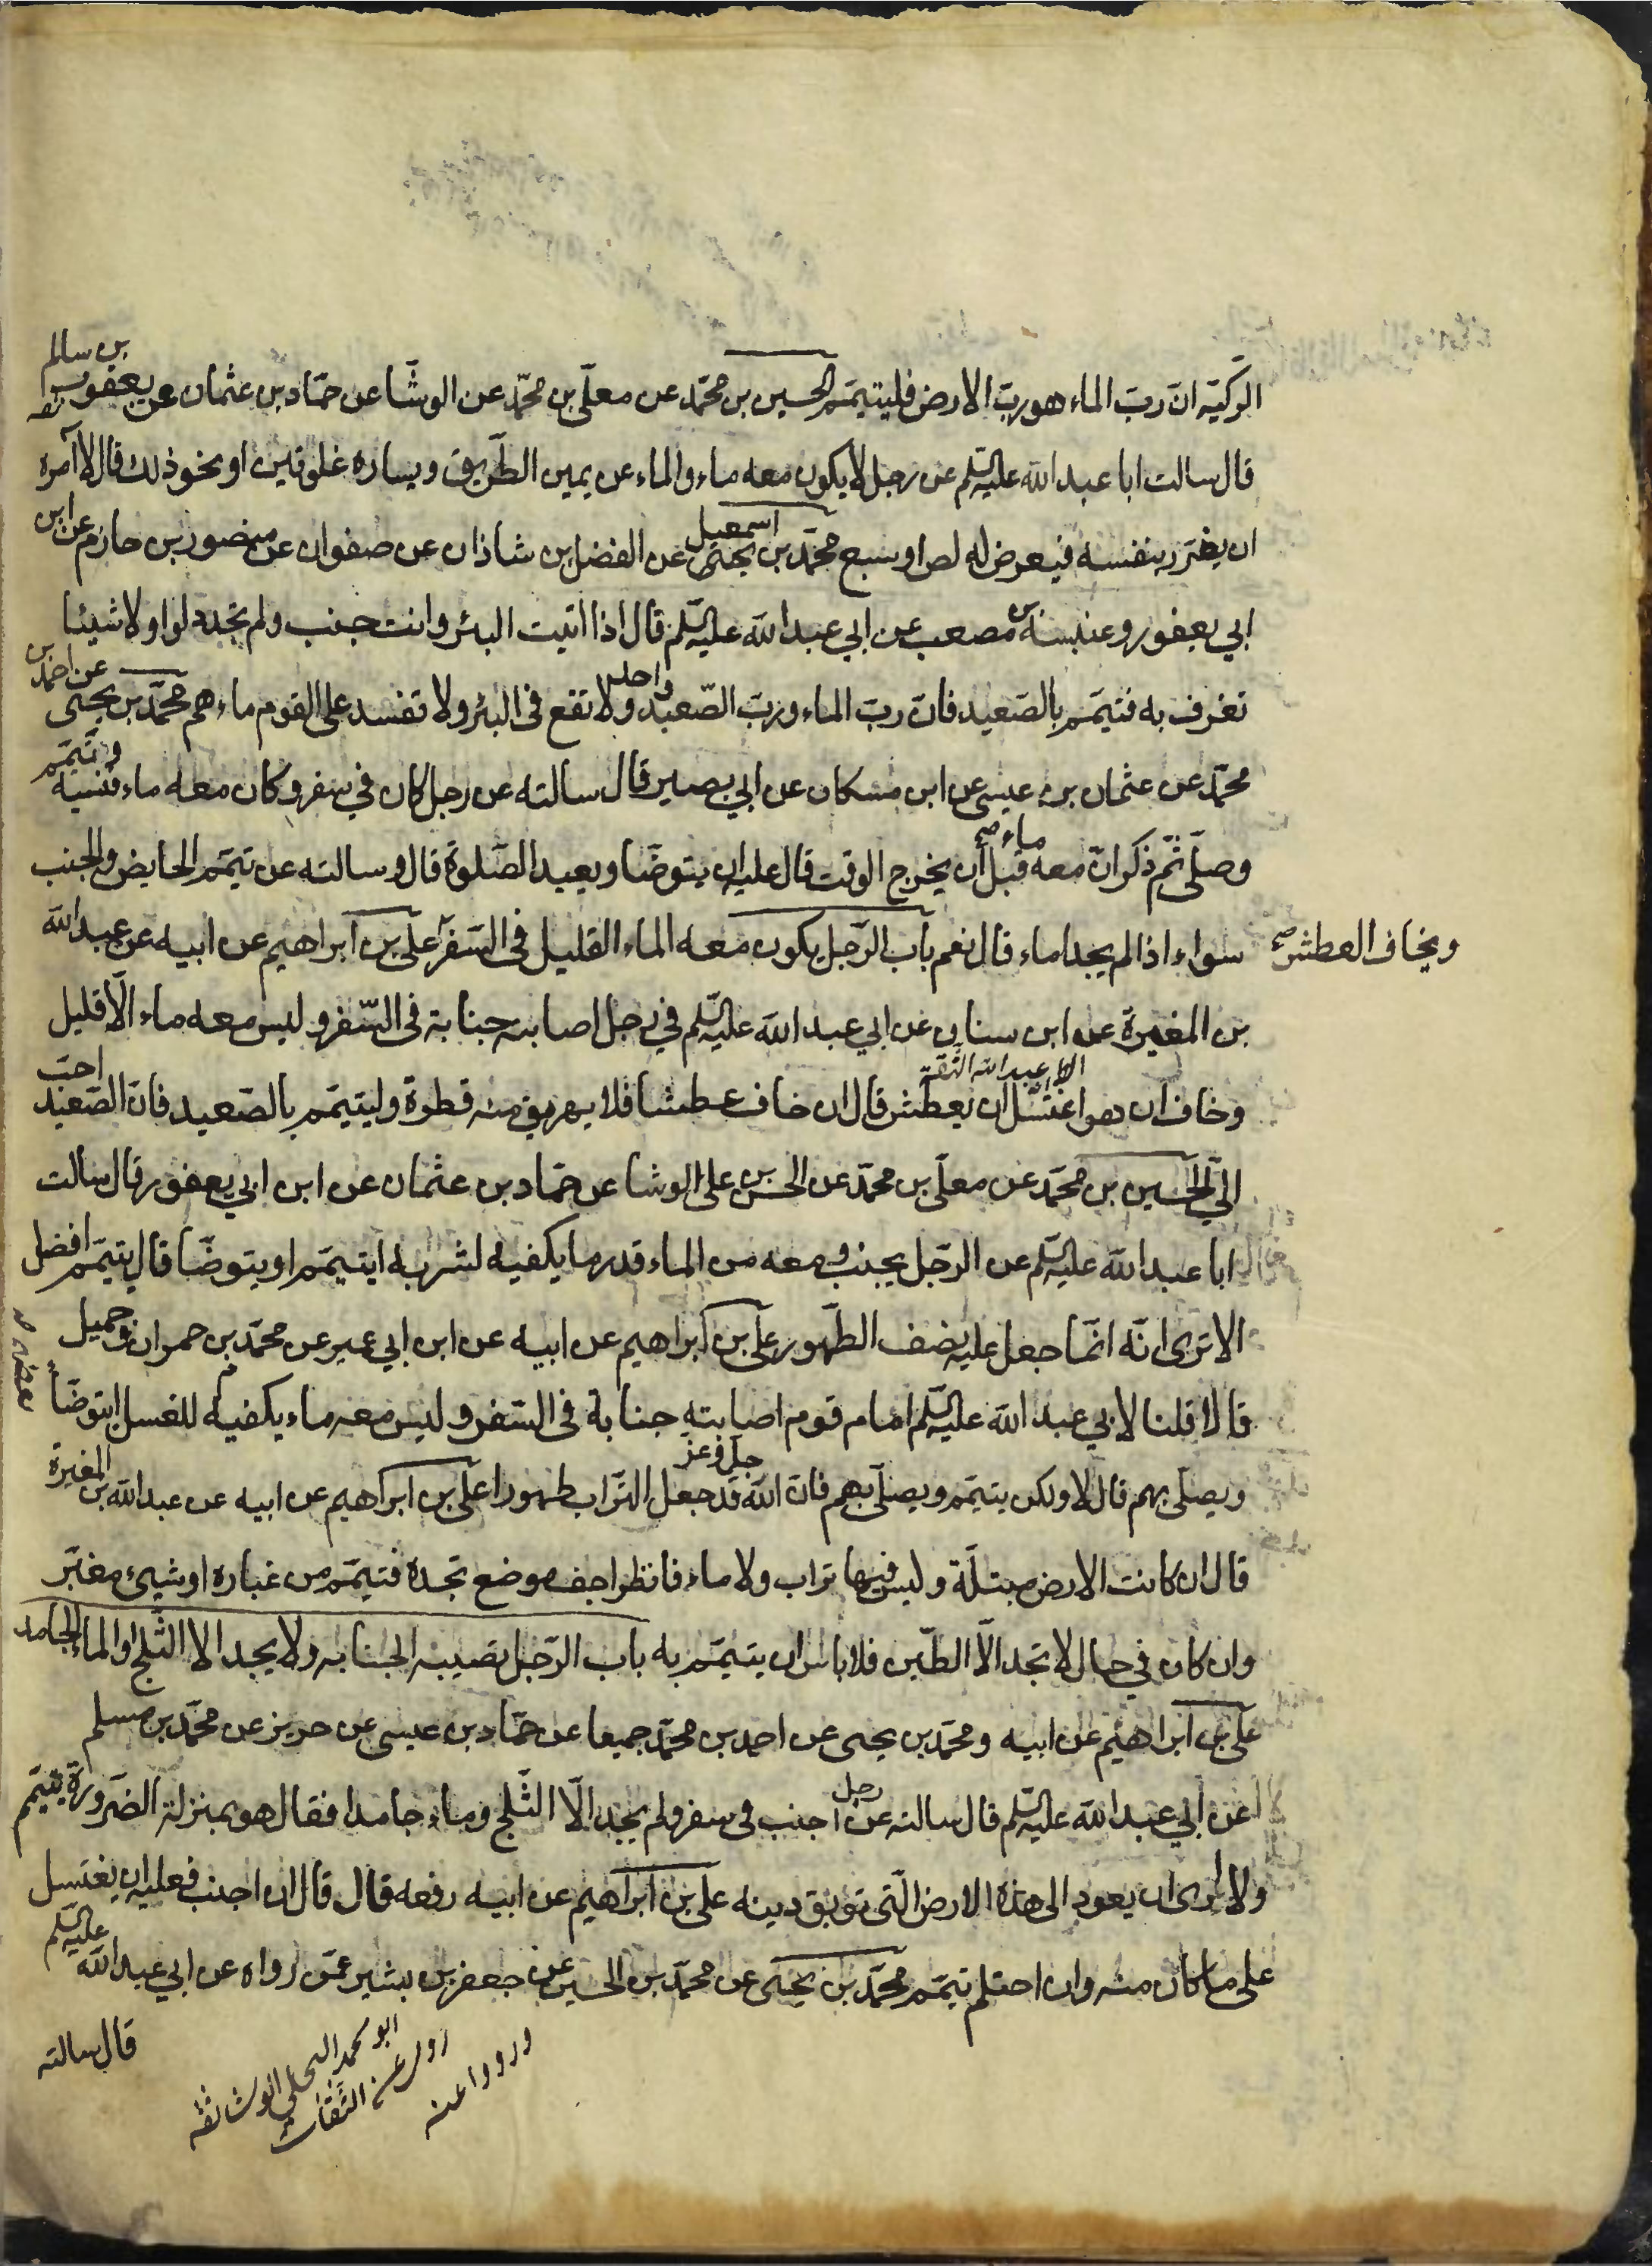 الركية ان رب الماء هو رب الارض فليتيمم الحسين بن محمد عن معلى بن محمد عن الوشا عن حماد بن عثمان عن يعقوب بن سالم
ثقه
قال سالت ابا عبد الله عليه السلم عن رجل لا يكون معه ماء والماء عن يمين الطريق ويساره غلوتين او نحو ذلك قال لا آمره
ان يغرر بنفسه فيعرض له لص او سبع محمد بن يحيى اسمعيل عن الفضل بن شاذان عن صفوان عن منصور بن حازم عن ابن
ابي يعفور وعنبسة بن مصعب عن ابي عبد الله عليه السلم قال اذا اتيت البئر وانت جنب ولم تجد دلوا ولا شيئا
تغرف به فتيمم بالصعيد فان رب الماء ورب الصعيد واحد ولا تقع في البئر ولا تفسد على القوم ماءهم محمد بن يحيى عن احمد بن
محمد عن عثمان بن عيسى عن ابن مسكان عن ابي بصير قال سالته عن رجل كان في سفر وكان معه ماء فنسيه وتيمم
وصلى ثم ذكر ان معه ماء صح قبل ان يخرج الوقت قال عليه ان يتوضا ويعيد الصلوة قال وسالته عن تيمم الحايض والجنب
سواء اذا لم يجدا ماء قال نعم باب الرجل يكون معه الماء القليل في السفر علي بن ابراهيم عن ابيه عن عبد الله
ويخاف العطش صح
بن المغيرة عن ابن سنان عن ابي عبد الله عليه السلم في رجل اصابته جنابة في السفر وليس معه ماء الا قليل
عبد الله الثقة
وخاف ان هو اغتسل ان يعطش قال ان خاف عطشا فلا يهريق منه قطرة وليتيمم بالصعيد فان الصعيد احب
الي الحسين بن محمد عن معلى بن محمد عن الحسن بن علي الوشا عن حماد بن عثمان عن ابن ابي يعفور قال سالت
ابا عبد الله عليه السلم عن الرجل يجنب ومعه من الماء قدر ما يكفيه لشربه ايتيمم او يتوضا قال يتيمم افضل
الا ترى انه انما جعل عليه نصف الطهور علي بن ابراهيم عن ابيه عن ابن ابي عمير عن محمد بن حمران وجميل
قالا قلنا لابي عبد الله عليه السلم امام قوم اصابته جنابة في السفر وليس معه ماء يكفيه للغسل ايتوضا
بعضهم
ويصلي بهم قال لا ولكن يتيمم ويصلي بهم فان الله جل وعز قد جعل التراب طهورا علي بن ابراهيم عن ابيه عن عبد الله بن المغيرة
قال ان كانت الارض مبتلة وليس فيها تراب ولا ماء فانظر اجف موضع تجده فتيمم من غباره او شيئ مغبر
وان كان في حال لا تجد الا الطين فلا باس ان يتيمم به باب الرجل تصيبه الجنابه ولا يجد الا الثلج او الماء الجامد
علي بن ابراهيم عن ابيه ومحمد بن يحيى عن احمد بن محمد جميعا عن حماد بن عيسى عن حريز عن محمد بن مسلم
عن ابي عبد الله عليه السلم قال سالته عن رجل اجنب في سفر ولم يجد الا الثلج وماء جامدا فقال هو بمنزلة الضرورة يتيمم
ولا ارى ان يعود الى هذه الارض التي توبق دينه علي بن ابراهيم عن ابيه رفعه قال قال ان اجنب فعليه ان يغتسل
على ما كان منه وان احتلم تيمم محمد بن يحيى عن محمد بن الحسين عن جعفر بن بشير عمن رواه عن ابي عبد الله عليه السلم
قال سالته
ابو محمد البجلي الوشا ثقة
روى عن الثقات
ورووا عنه